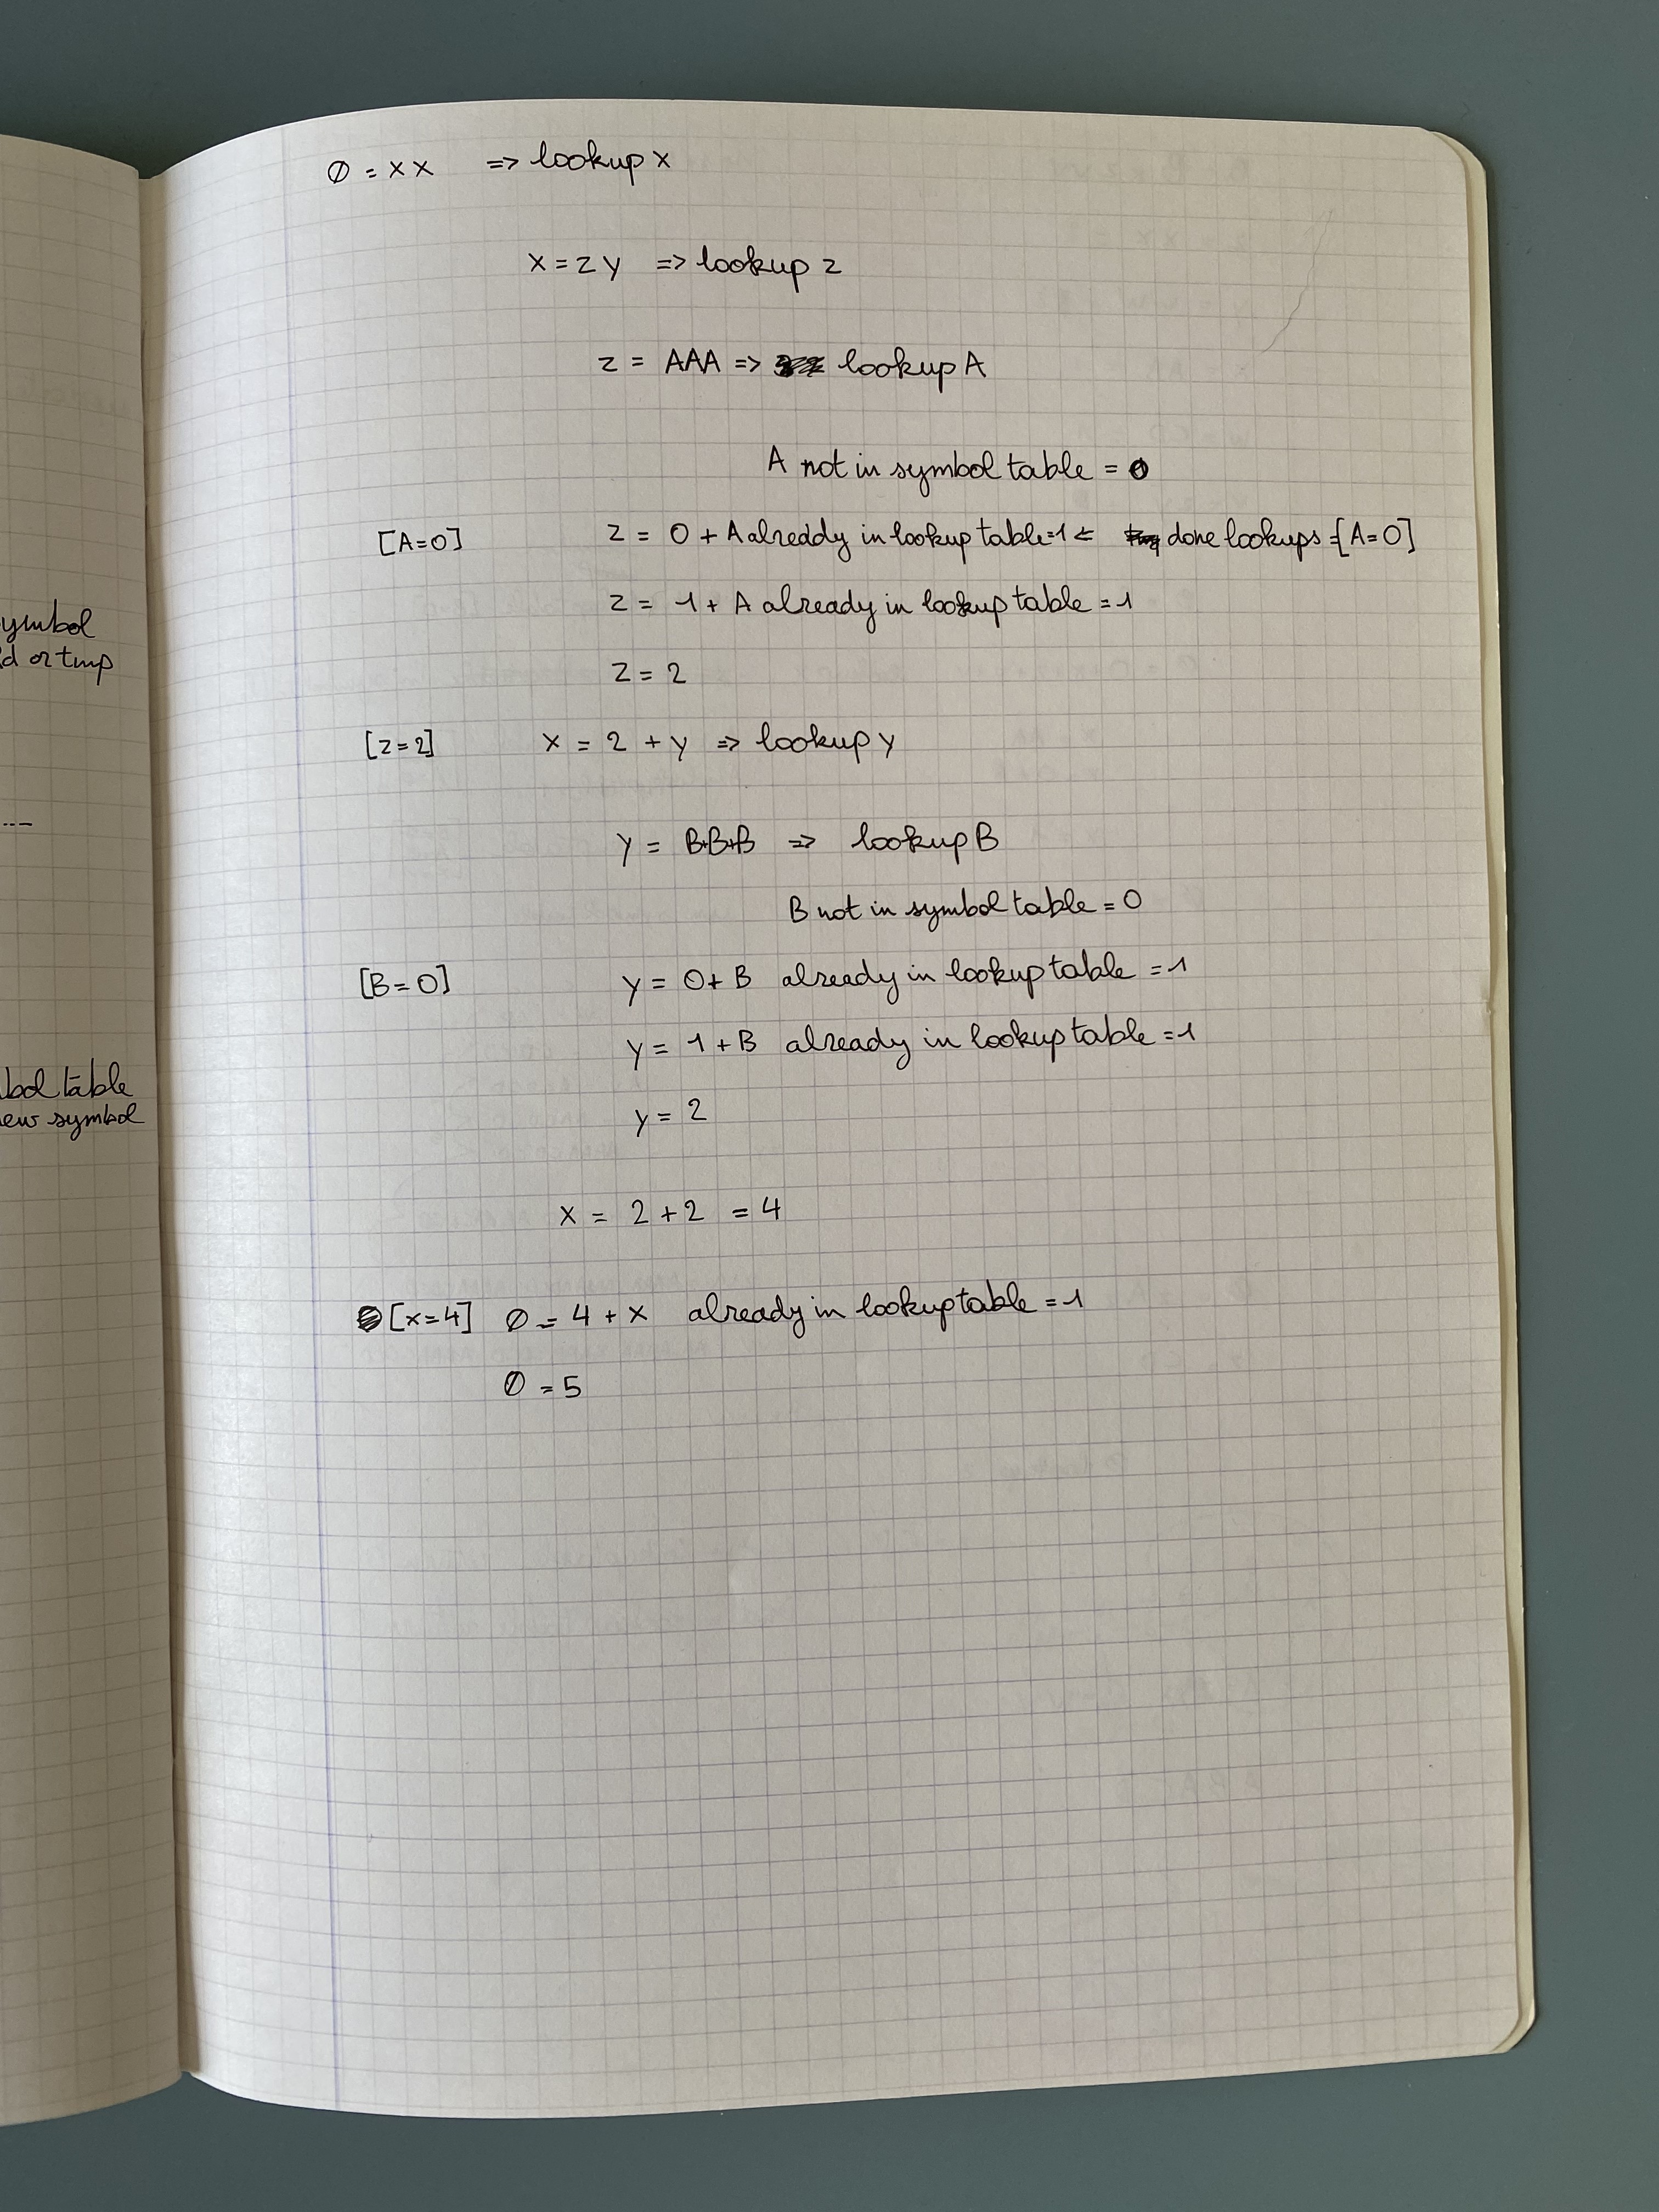 ymbol
d or tmp
---
bol table
ew symbol
Ø = x x => lookup x
x = z y => lookup z
z = AAA => lookup A
A not in symbol table = 0
[A=0] z = 0 + A alreddy in lookup table=1 <= done lookups = [A=0]
z = 1 + A already in lookup table = 1
z = 2
[z=2] x = 2 + y => lookup y
y = B+B+B => lookup B
B not in symbol table = 0
[B=0] y = 0 + B already in lookup table = 1
y = 1 + B already in lookup table = 1
y = 2
x = 2 + 2 = 4
[x=4] Ø = 4 + x already in lookup table = 1
Ø = 5